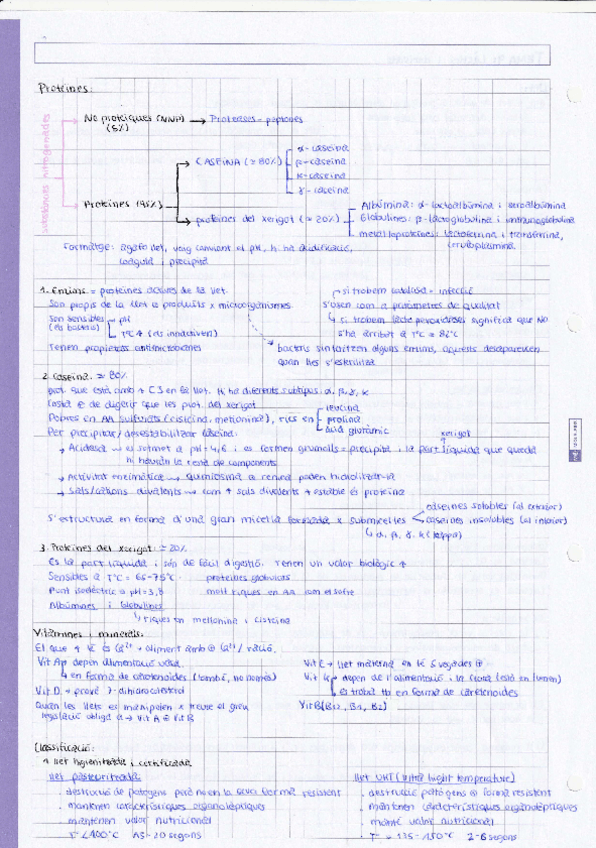 Proteïnes:
substàncies nitrogenades
No proteiques (NNP) → Proteoses - peptones
(5%)
Proteïnes (95%)
CASEÏNA (≈ 80%)
α - caseïna
β - caseïna
κ - caseïna
γ - caseïna
proteïnes del xerigot (≈ 20%)
Albúmina: α-lactoalbúmina i seroalbúmina
Globulines: β-lactoglobulina i immunoglobulina
metaloproteïnes: lactoferrina i transferrina,
ceruloplasmina
Formatge: agafo llet, vaig canviant el pH, hi ha acidificació,
coagula i precipita
1. Enzims = proteïnes actives de la llet.
Són propis de la llet o produïts x microorganismes
Són sensibles
(els bacteris)
pH
Tª C ↑ (els inactiven)
Tenen propietats antimicrobianes
si trobem catalasa = infecció
S'usen com a paràmetres de qualitat
si trobem lacteperoxidases significa que NO
s'ha arribat a Tª C = 82ºC
bacteris sintoritzen alguns enzims, aquests desapareixen
quan llet s'esterilitza
2. Caseïna. ≈ 80%
prot que està amb + [ ] en la llet. Hi ha diferents subtipus: α, β, γ, κ
Costa ⊕ de digerir que les prot. del xerigot
Pobres en AA sulfurats (cisteïna, metionina), rics en
leucina
prolina
àcid glutàmic
Per precipitar / desestabilitzar caseïna:
→ Acidesa → es sotmet a pH = 4,6 i es formen grumolls = precipita i la part líquida que queda
xerigot
hi hauran la resta de components
→ Activitat enzimàtica → quimosina o renina poden hidrolitzar-la
→ Sals/cations divalents → com + sals divalents + estable és proteïna
S'estructura en forma d'una gran micel·la formada x submicel·les
caseïnes solubles (al exterior)
caseïnes insolubles (al interior)
α, β, γ, κ (kappa)
3. Proteïnes del xerigot: ≈ 20%
És la part líquida i són de fàcil digestió. Tenen un valor biològic ↑
Sensibles a Tª C = 65-75ºC
proteïnes globulars
Punt isoelèctric a pH = 3,8
molt riques en AA com el sofre
Albúmines i Globulines
riques en metionina i cisteïna
Vitamines i minerals:
El que + té és Ca²⁺ + aliment amb ⊕ Ca²⁺ / ració.
Vit A → depèn alimentació vaca.
en forma de carotenoides (també, no només)
Vit D → prové 7-dihidrocolesterol
Quan les llets es manipulen x treure el greix
legislació obliga a → Vit A ⊕ Vit D
Vit C → llet materna en té 5 vegades ⊕
Vit K → depèn de l'alimentació i la flora (està en rumen)
es troba tb en forma de carotenoides
Vit B (B12, B1, B2)
Classificació:
1 llet higienitzada i certificada
llet pasteuritzada
· destrucció de patògens però no en la seva forma resistent
· mantenen característiques organolèptiques
· mantenen valor nutricional
· Tª < 100ºC 15-20 segons
llet UHT (ultra hight temperature)
· destrucció patògens ⊕ forma resistent
· mantenen característiques organolèptiques
· manté valor nutricional
· Tª = 135-150ºC 2-6 segons